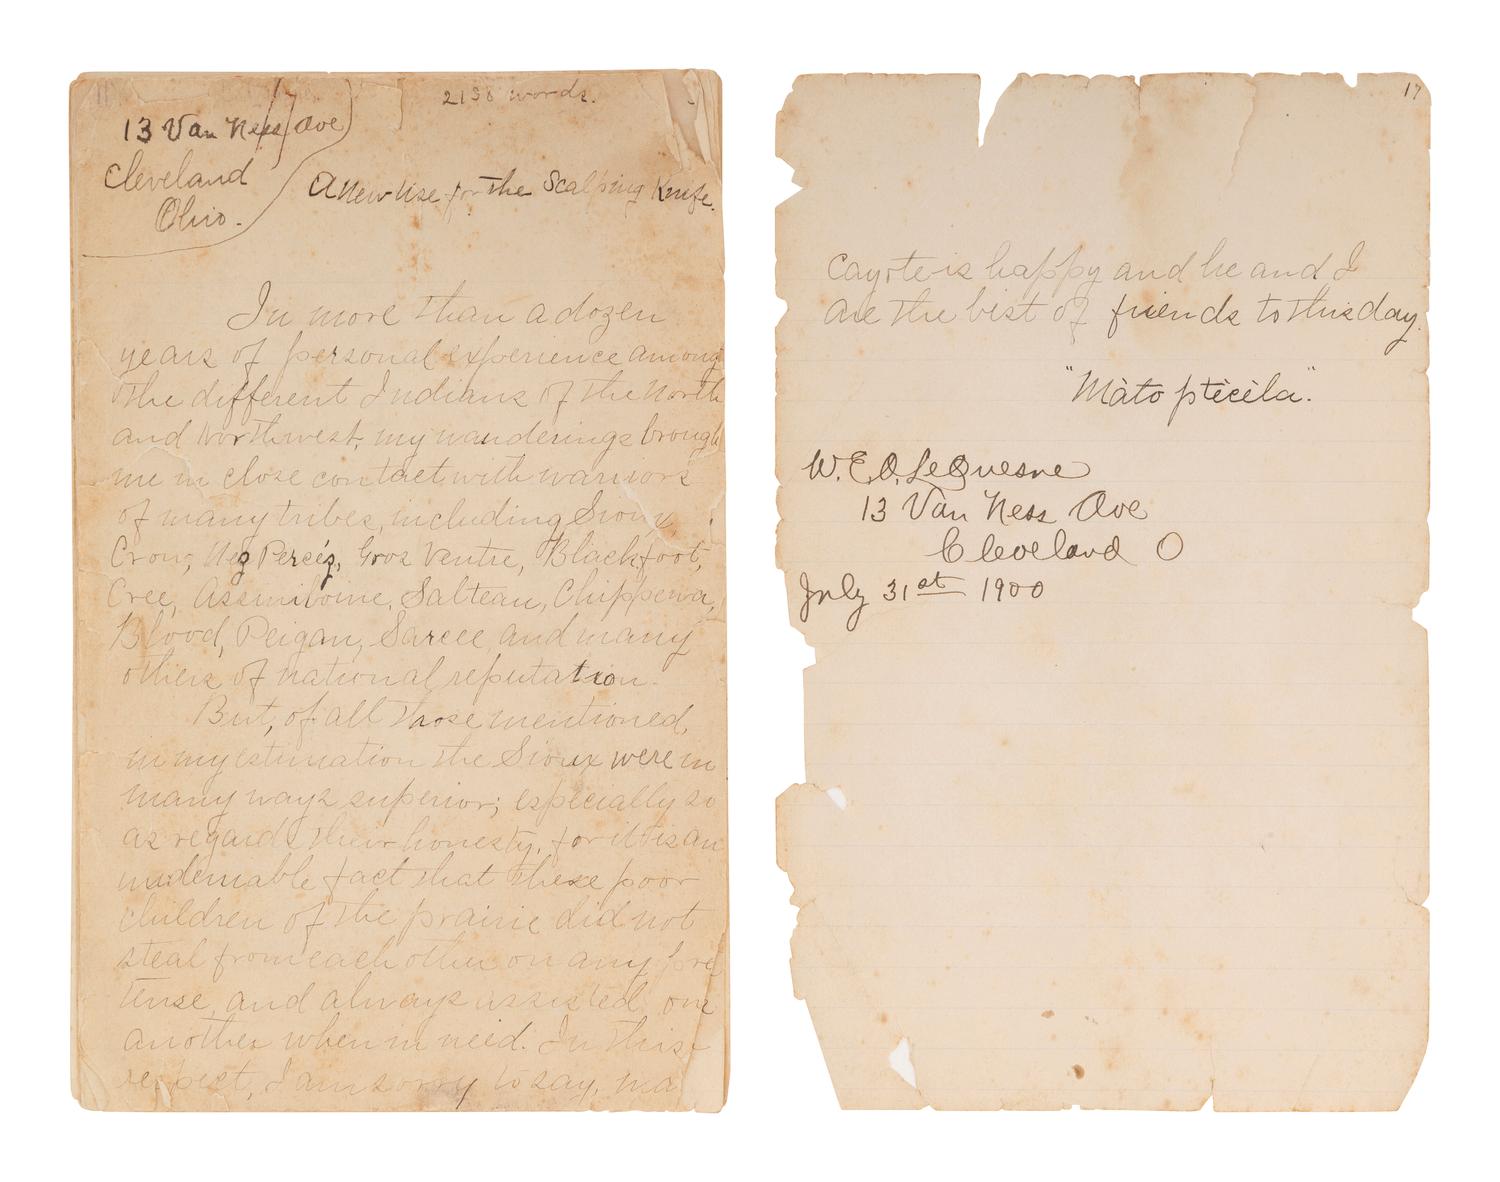 2150 words.
13 Van Ness Ave
Cleveland
Ohio.
A New Use for the Scalping Knife.
In more than a dozen
years of personal experience among
the different Indians of the North
and Northwest, my wanderings brough
me in close contact with warriors
of many tribes, including Sioux,
Crow, Nez Percéz, Gros Ventre, Blackfoot,
Cree, Assiniboine, Salteau, Chippewa,
Blood, Peigan, Sarcee, and many
others of national reputation.
But, of all those mentioned,
in my estimation the Sioux were in
many ways superior; especially so
as regards their honesty, for it is an
undeniable fact that these poor
children of the prairie did not
steal from each other on any pre
tense, and always assisted one
another when in need. In this
respect, I am sorry to say, ma
17
Cayote is happy and he and I
are the best of friends to this day.
"Màto ptècèla".
W. E. O. LeQuesne
13 Van Ness Ave
Cleveland O
July 31st 1900